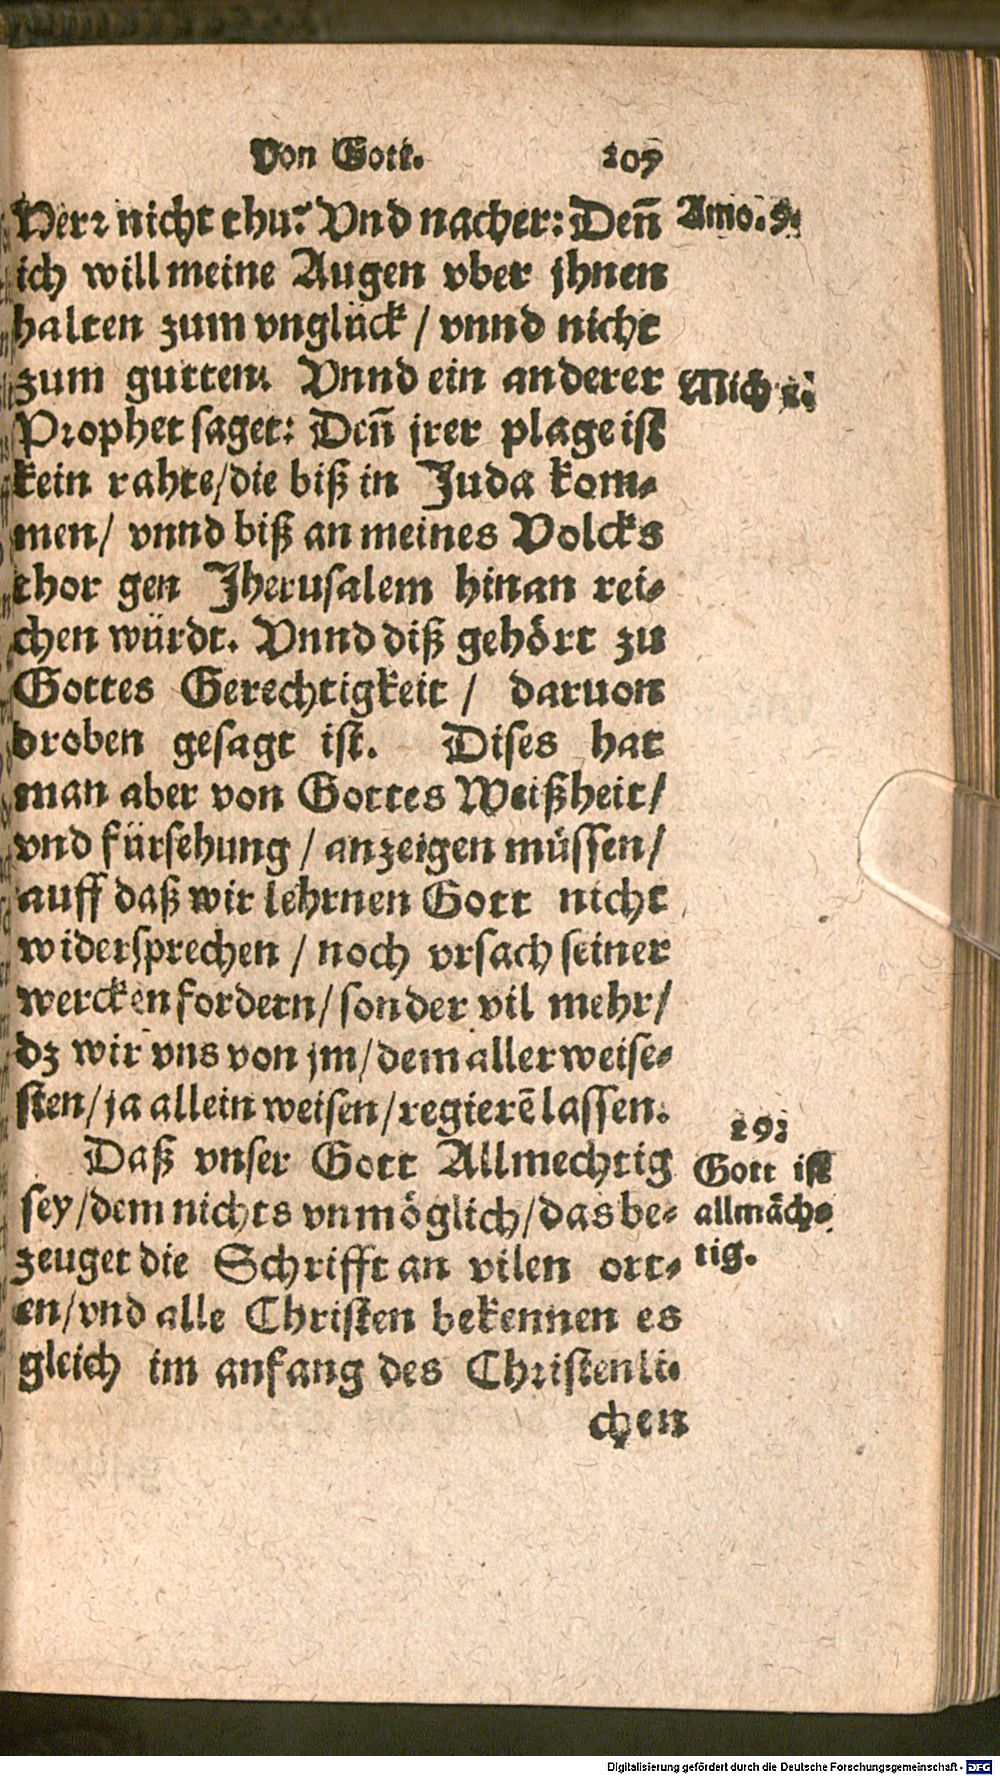 Von Gott. 209
Herr nicht thu? Vnd nacher: Deñ
Amo. 9.
ich will meine Augen vber jhnen
halten zum vnglück / vnnd nicht
zum gutten. Vnnd ein anderer
Mich 1.
Prophet saget: Deñ jrer plage ist
kein rahte/die biß in Juda kom-
men/ vnnd biß an meines Volcks
thor gen Jherusalem hinan rei-
chen würdt. Vnnd diß gehört zu
Gottes Gerechtigkeit / daruon
droben gesagt ist. Dises hat
man aber von Gottes Weißheit/
vnd fürsehung / anzeigen müssen/
auff daß wir lehrnen Gott nicht
widersprechen / noch vrsach seiner
wercken fordern/ sonder vil mehr/
dz wir vns von jm/dem allerweise-
sten/ja allein weisen/regierē lassen.
Daß vnser Gott Allmechtig
sey/dem nichts vnmöglich/das be-
zeuget die Schrifft an vilen ort-
en/vnd alle Christen bekennen es
gleich im anfang des Christenli-
chen
Gott ist
allmäch-
tig.
Digitalisierung gefördert durch die Deutsche Forschungsgemeinschaft - DFG